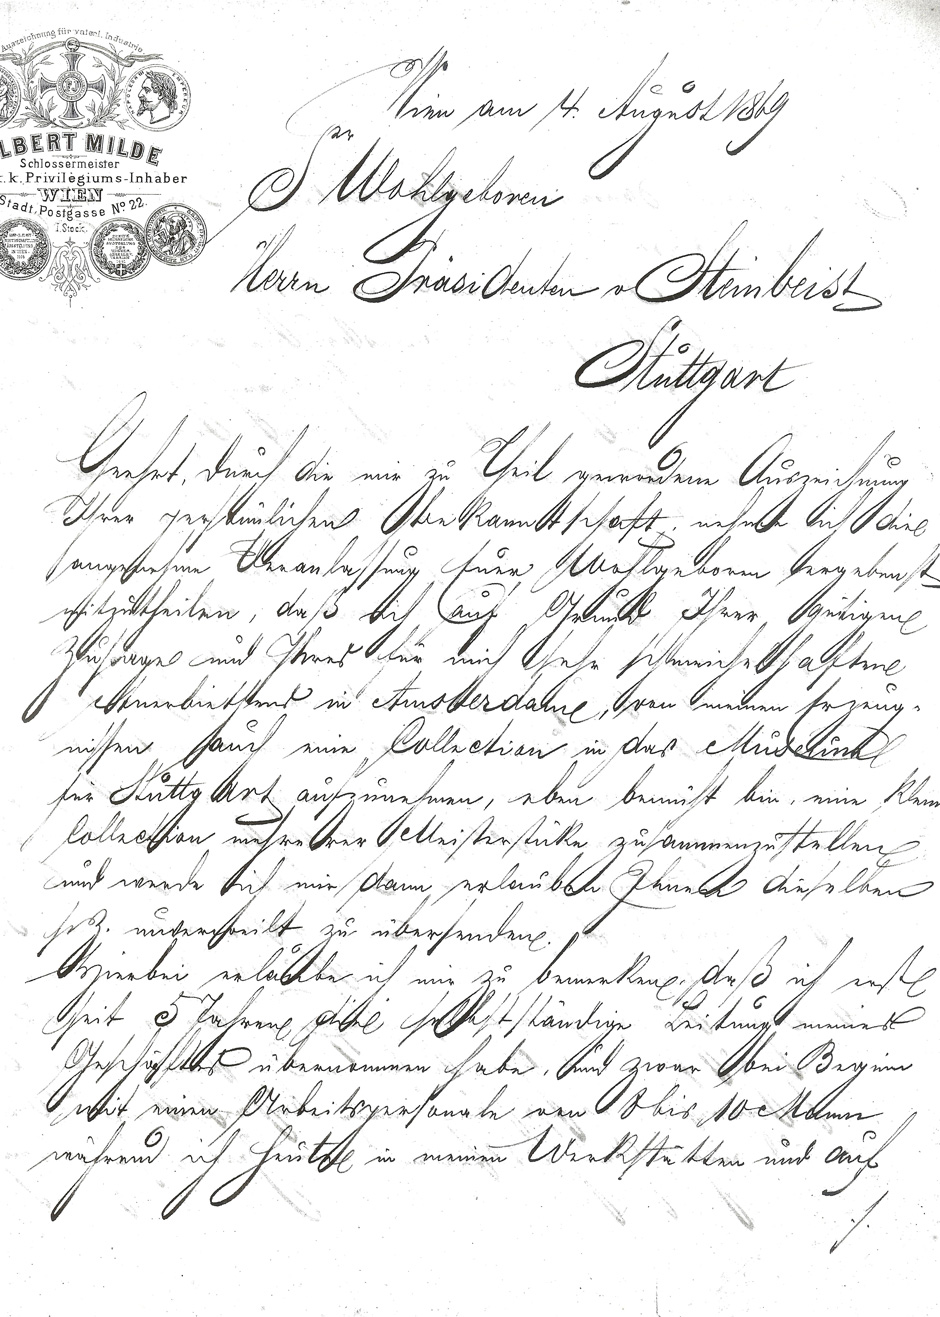 Auszeichnung für vaterl. Industrie
LBERT MILDE
Schlossermeister
k. Privilegiums-Inhaber
WIEN
Stadt, Postgasse No 22.
I. Stock.
Wien am 4. August 1869
Sr Wohlgeboren
Herrn Präsidenten v Steinbeist
Stuttgart
Geehrt, durch die mir zu Theil gewordene Auszeichnung
Ihrer persönlichen Bekanntschaft, nehme ich die
angenehme Veranlassung Euer Wohlgeboren ergebenst
mitzutheilen, daß ich auf Grund Ihrer gütigen
Zusage und Ihres für mich sehr schmeichelhaften
Anerbiethens in Amsterdam, von meinen Erzeug-
nissen auch eine Collection in das Museum
für Stuttgart aufzunehmen, eben bemüht bin, eine klein
Collection mehrerer Meisterstüke zusammenzustellen
und werde ich mir dann erlauben Ihnen dieselben
unverweilt zu übersenden.
Hierbei erlaube ich mir zu bemerken, daß ich erst
seit 5 Jahren die selbstständige Leitung meines
Geschäftes übernommen habe, und zwar bei Beginn
mit einen Arbeitspersonale von 8 bis 10 Mann
während ich heute in meinen Werkstätten und auf
./.